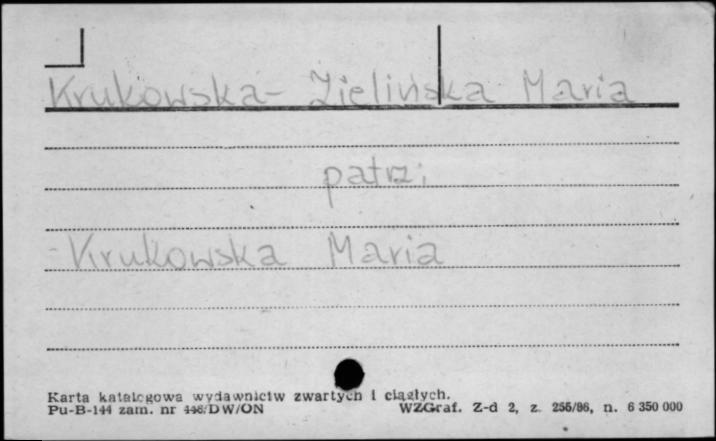 Krukowska-Zielińska Maria
patrz:
Krukowska Maria
Karta katalogowa wydawnictw zwartych i ciągłych.
Pu-B-144 zam. nr 446/DW/ON WZGraf. Z-d 2, z. 256/86, n. 6 350 000